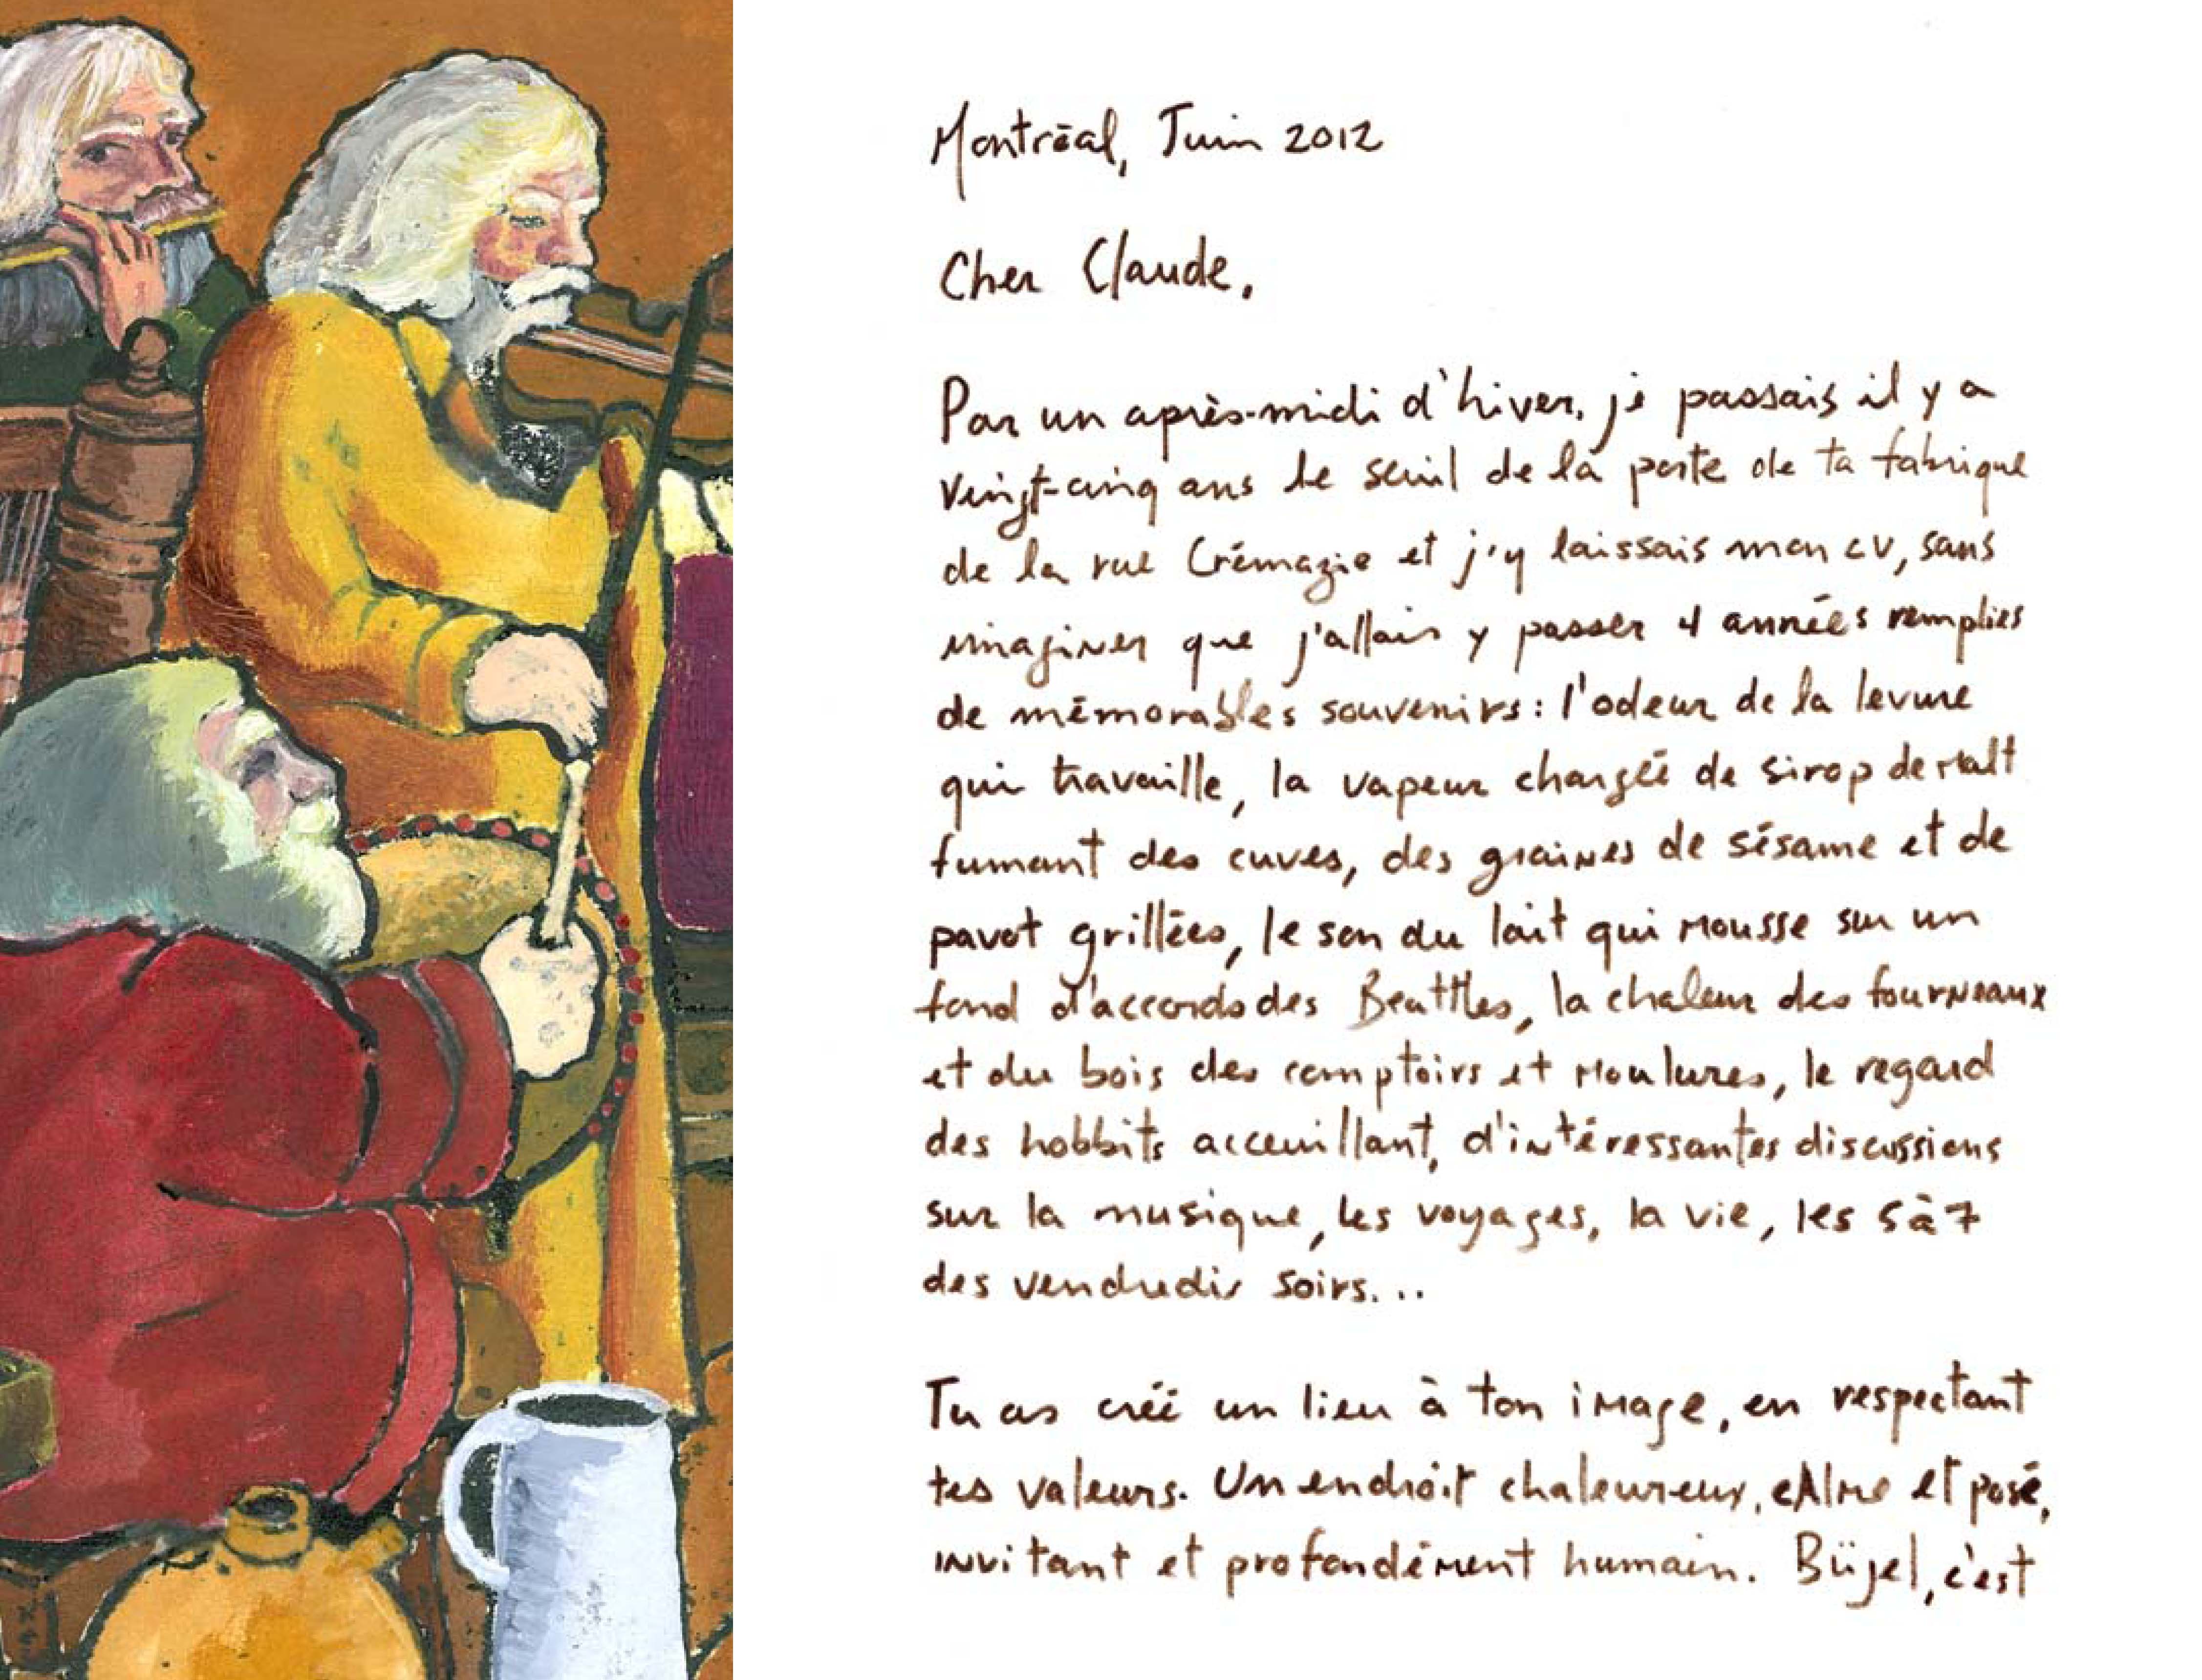 Montréal, Juin 2012
Cher Claude,
Par un après-midi d'hiver, je passais il y a
vingt-cinq ans le seuil de la porte de ta fabrique
de la rue Crémazie et j'y laissais mon CV, sans
imaginer que j'allais y passer 4 années remplies
de mémorables souvenirs : l'odeur de la levure
qui travaille, la vapeur chargée de sirop de malt
fumant des cuves, des graines de sésame et de
pavot grillées, le son du lait qui mousse sur un
fond d'accords des Beattles, la chaleur des fourneaux
et du bois des comptoirs et moulures, le regard
des hobbits acceuillant, d'intéressantes discussions
sur la musique, les voyages, la vie, les 5 à 7
des vendredis soirs...
Tu as créé un lieu à ton image, en respectant
tes valeurs. Un endroit chaleureux, calme et posé,
invitant et profondément humain. Büjel, c'est